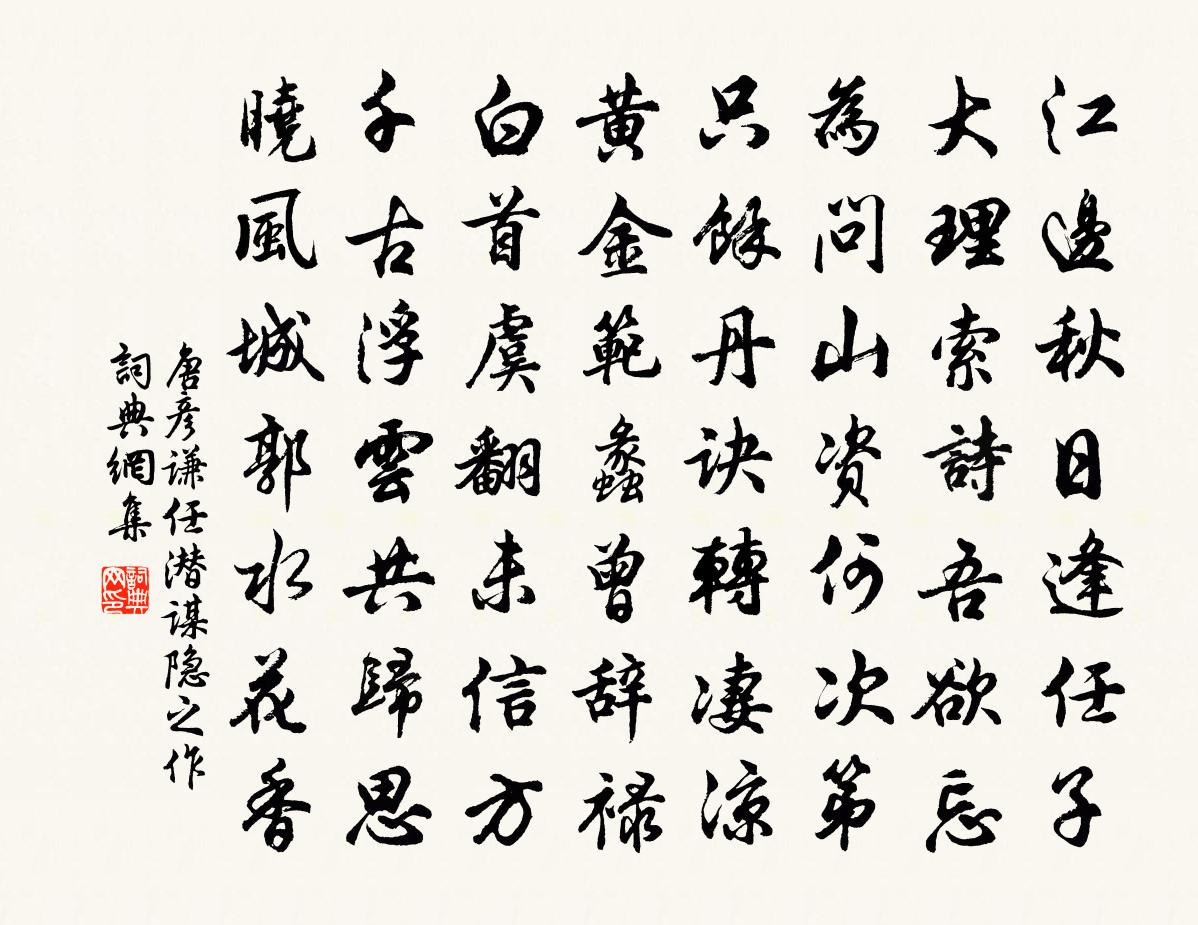 江邊秋日逢任子
大理索詩吾欲忘
為問山資何次第
只餘丹訣轉凄涼
黃金範蠡曾辞禄
白首虞翻未信方
千古浮雲共歸思
曉風城郭水花香
唐彦谦任潜谋隐之作
詞典網集
詞典网印